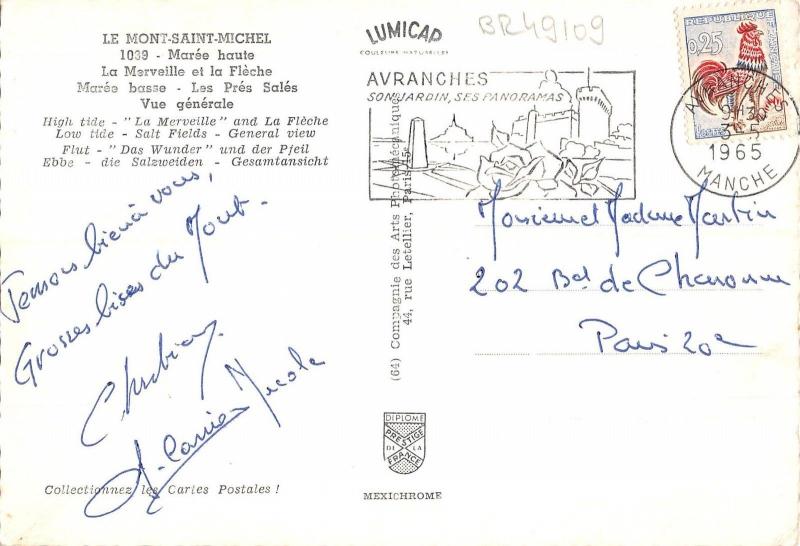 LE MONT-SAINT-MICHEL
1039 - Marée haute
La Merveille et la Flèche
Marée basse - Les Prés Salés
Vue générale
High tide - "La Merveille" and La Flèche
Low tide - Salt Fields - General view
Flut - "Das Wunder" und der Pfeil
Ebbe - die Salzweiden - Gesamtansicht
Pensons bien à vous,
Grosses bises du Mont.
Nicole
Collectionnez les Cartes Postales !
LUMICAP
COULEURS NATURELLES
BR49109
AVRANCHES
SON JARDIN, SES PANORAMAS
REPUBLIQUE
0,25
AVRANCHES
1965
MANCHE
(64) Compagnie des Arts Photomécaniques
44, rue Letellier, Paris-15e
DIPLOME
PRESTIGE
DE LA
FRANCE
MEXICHROME
Monsieur et Madame Martin
202 Bd. de Charonne
Paris 20e